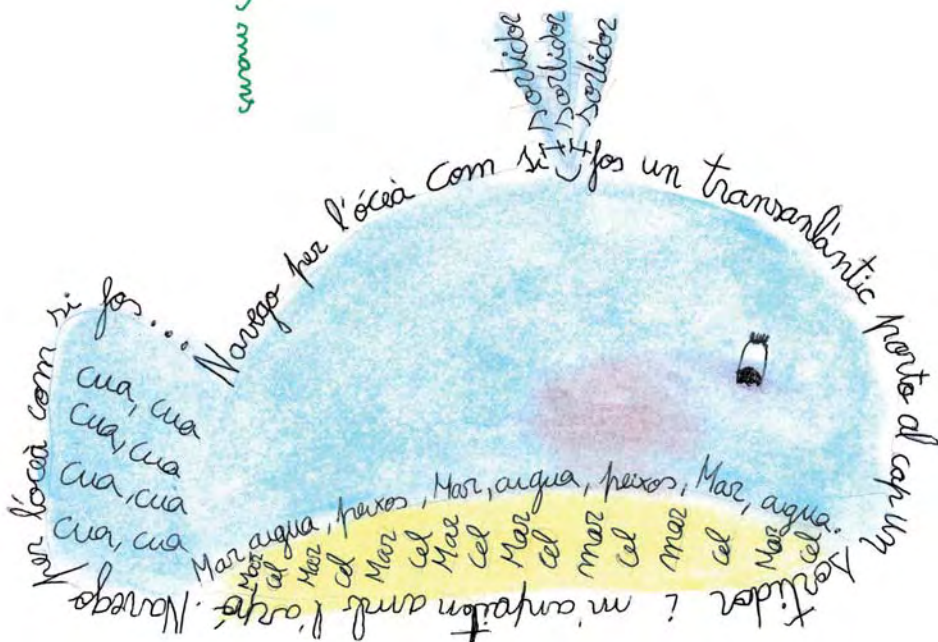 sortidor
sortidor
sortidor
Navego per l'óceà com si fos un transanlàntic porto al cap un sortidor i m'anpaiton amb l'arpó. Navego per l'óceà com si fos...
cua, cua
Cua, cua
cua, cua
cua, cua
Mar, aigua, peixos, Mar, aigua, peixos, Mar, aigua.
Mar
cel
Mar
cel
Mar
cel
Mar
cel
Mar
cel
mar
cel
mar
cel
Mar
cel